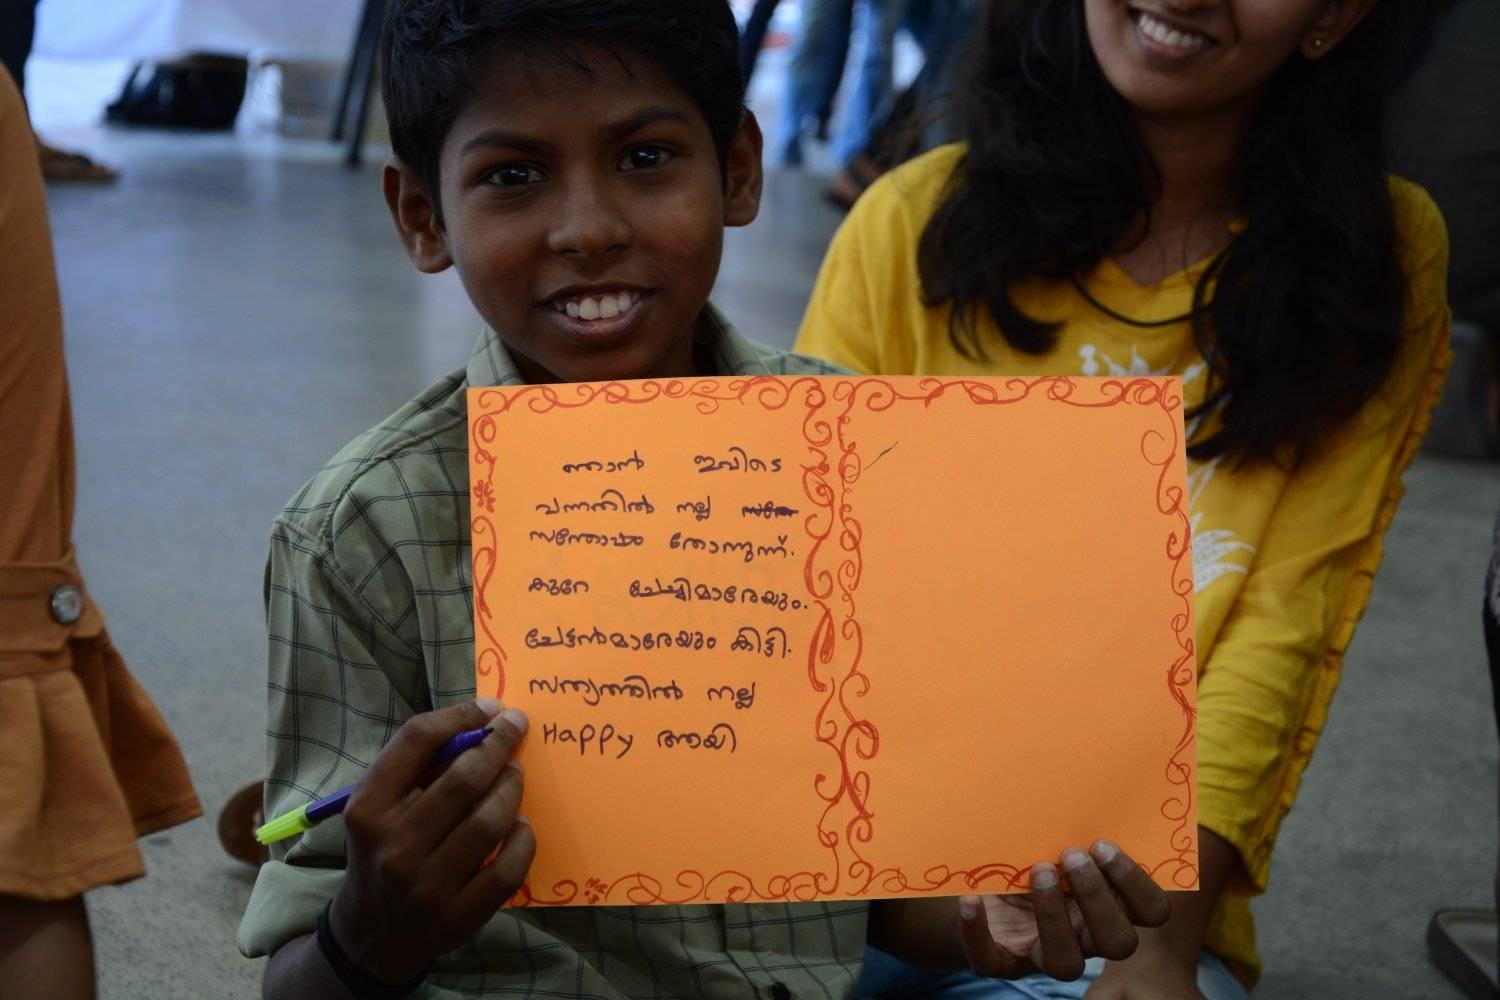 ഞാൻ ഇവിടെ
വന്നതിൽ നല്ല
സന്തോഷം തോന്നുന്ന്.
കുറേ ചേച്ചിമാരേയും.
ചേട്ടൻമാരേയും കിട്ടി.
സത്യത്തിൽ നല്ല
Happy ആയി